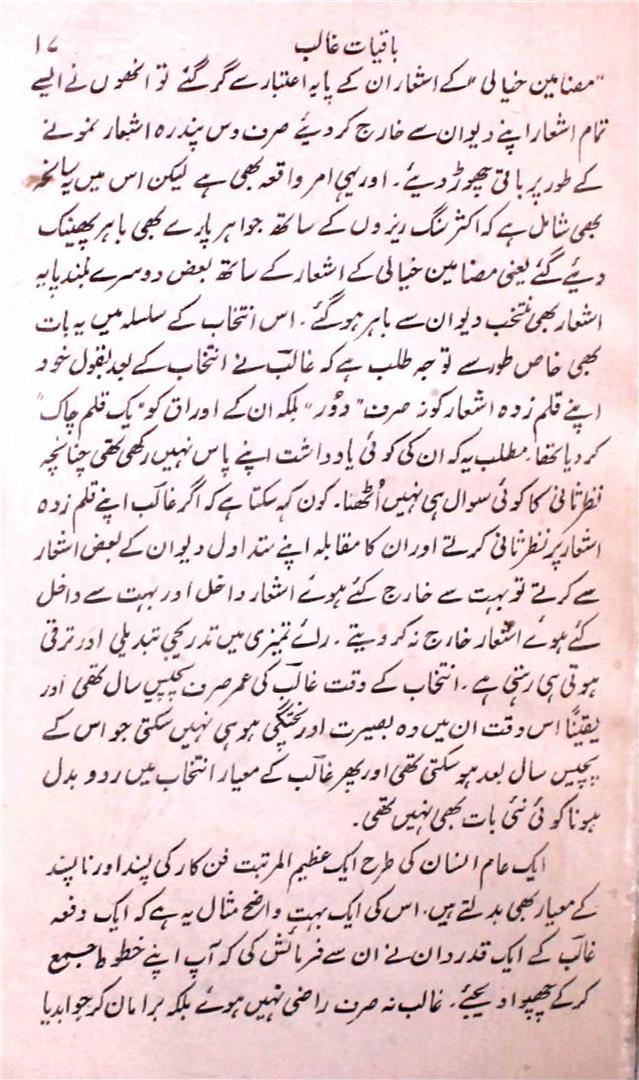 باقیات غالب ۱۷
"مضامین خیالی" کے اشعار ان کے پایۂ اعتبار سے گر گئے تو انھوں نے ایسے
تمام اشعار اپنے دیوان سے خارج کر دیئے صرف دس پندرہ اشعار نمونے
کے طور پر باقی چھوڑ دیئے۔ اور یہی امر واقعہ بھی ہے لیکن اس میں یہ سانحہ
بھی شامل ہے کہ اکثر سنگ ریزوں کے ساتھ جواہر پارے بھی باہر پھینک
دیئے گئے یعنی مضامین خیالی کے اشعار کے ساتھ بعض دوسرے بلند پایہ
اشعار بھی منتخب دیوان سے باہر ہو گئے۔ اس انتخاب کے سلسلہ میں یہ بات
بھی خاص طور سے توجہ طلب ہے کہ غالبؔ نے انتخاب کے بعد بقول خود
اپنے قلم زدہ اشعار کو نہ صرف "دوُر" بلکہ ان کے اوراق کو "یک قلم چاک"
کر دیا تھا۔ مطلب یہ کہ ان کی کوئی یادداشت اپنے پاس نہیں رکھی تھی چنانچہ
نظر ثانی کا کوئی سوال ہی نہیں اُٹھتا۔ کون کہہ سکتا ہے کہ اگر غالبؔ اپنے قلم زدہ
اشعار پر نظر ثانی کرتے اور ان کا مقابلہ اپنے متداول دیوان کے بعض اشعار
سے کرتے تو بہت سے خارج کئے ہوئے اشعار داخل اور بہت سے داخل
کئے ہوئے اشعار خارج نہ کر دیتے۔ رائے تمیزی میں تدریجی تبدیلی اور ترقی
ہوتی ہی رہتی ہے۔ انتخاب کے وقت غالبؔ کی عمر صرف پچیس سال تھی اور
یقیناً اس وقت ان میں وہ بصیرت اور پختگی ہو ہی نہیں سکتی جو اس کے
پچیس سال بعد ہو سکتی تھی اور پھر غالبؔ کے معیار انتخاب میں رد و بدل
ہونا کوئی نئی بات بھی نہیں تھی۔
ایک عام انسان کی طرح ایک عظیم المرتبت فن کار کی پسند اور ناپسند
کے معیار بھی بدلتے ہیں۔ اس کی ایک بہت واضح مثال یہ ہے کہ ایک دفعہ
غالبؔ کے ایک قدردان نے ان سے فرمائش کی کہ آپ اپنے خطوط جمع
کر کے چھپوا دیجئے۔ غالب نہ صرف راضی نہیں ہوئے بلکہ برا مان کر جواب دیا